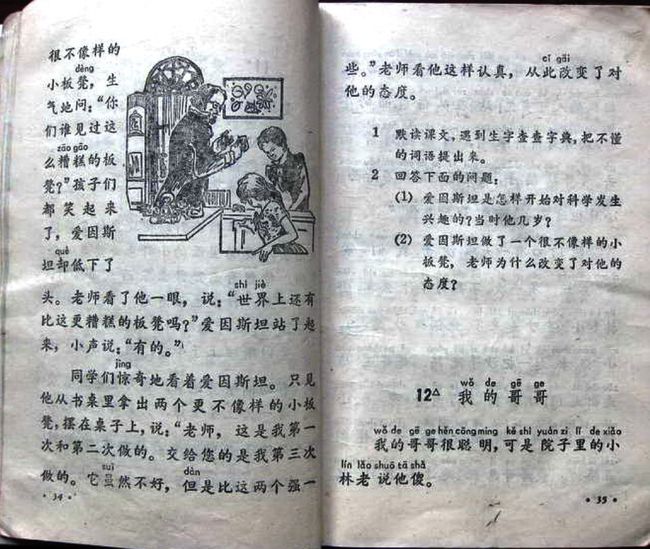 很不像样的
dèng
小板凳，生
气地问：“你
们谁见过这
zāo gāo
么糟糕的板
凳？”孩子们
都笑起来
了，爱因斯
què
坦却低下了
shì jiè
头。老师看了他一眼，说：“世界上还有
比这更糟糕的板凳吗？”爱因斯坦站了起
来，小声说：“有的。”
jīng
同学们惊奇地看着爱因斯坦。只见
他从书桌里拿出两个更不像样的小板
凳，摆在桌子上，说：“老师，这是我第一
次和第二次做的。交给您的是我第三次
suī dàn
做的。它虽然不好，但是比这两个强一
· 34 ·
cǐ gǎi
些。”老师看他这样认真，从此改变了对
他的态度。
1 默读课文，遇到生字查查字典，把不懂
的词语提出来。
2 回答下面的问题：
(1) 爱因斯坦是怎样开始对科学发生
兴趣的？当时他几岁？
(2) 爱因斯坦做了一个很不像样的小
板凳，老师为什么改变了对他的
态度？
wǒ de gē ge
12△ 我的哥哥
wǒ de gē ge hěn cōng míng kě shì yuàn zi lǐ de xiǎo
我的哥哥很聪明，可是院子里的小
lín lǎo shuō tā shǎ
林老说他傻。
· 35 ·